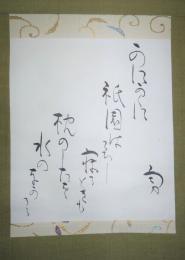 かにかくに
祇園はこひし
寐るときも
枕のしたを
水の
ながるゝ
勇